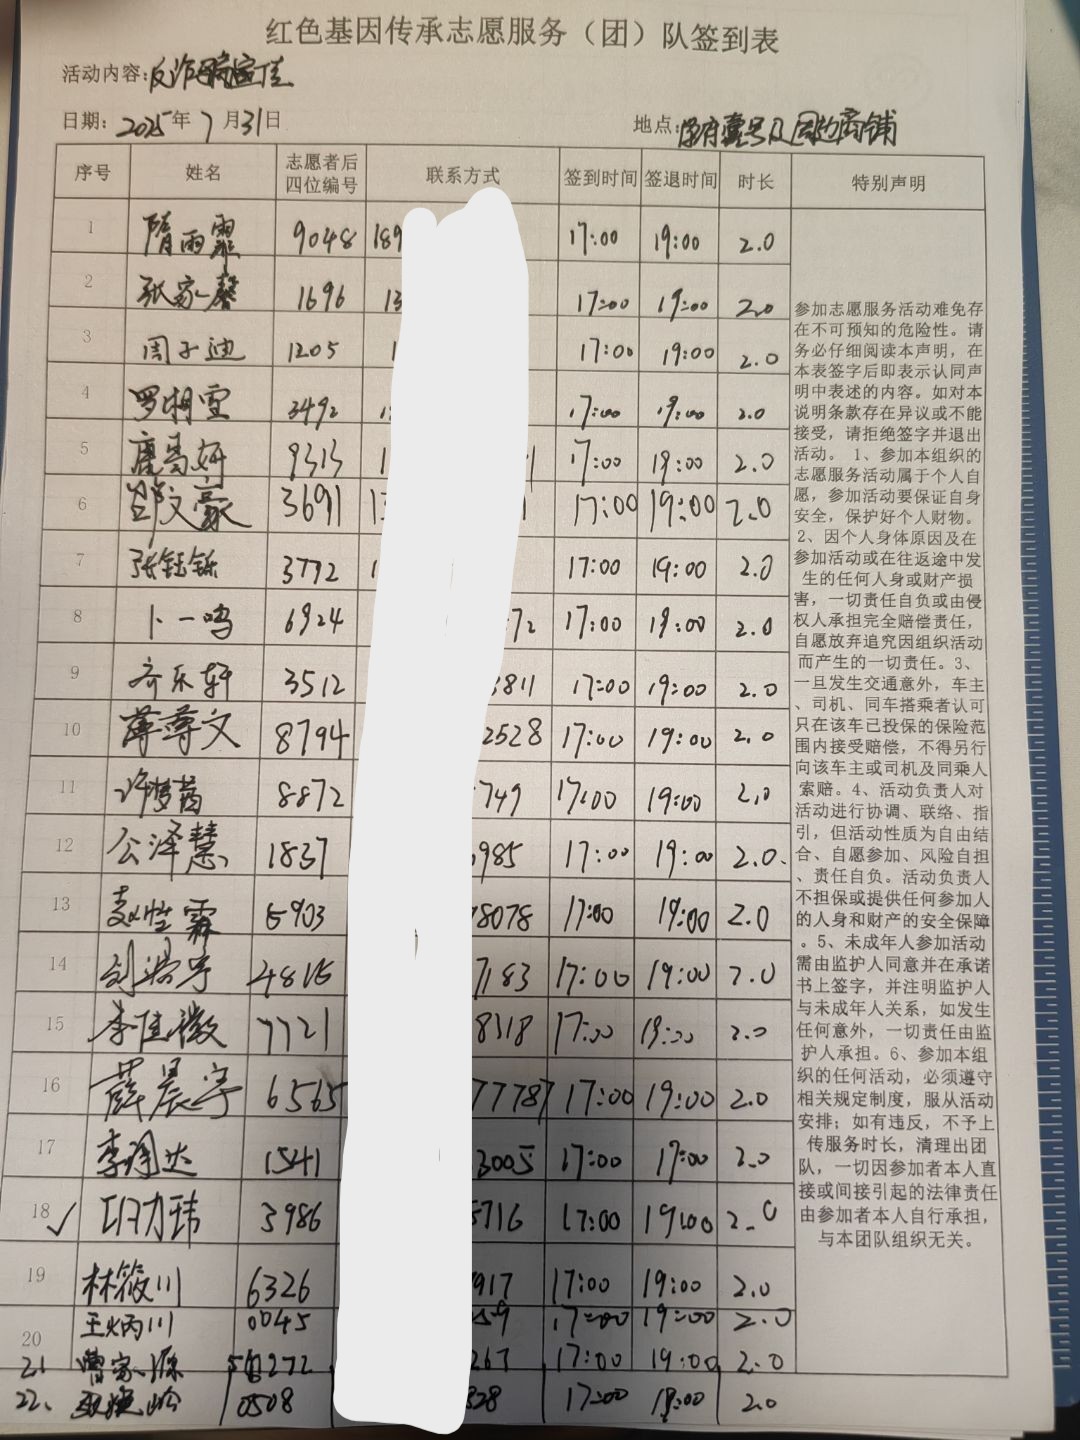 红色基因传承志愿服务（团）队签到表
活动内容：反诈
日期：2025年7月31日 地点：学府壹号及周边商铺
序号 姓名 志愿者后四位编号 联系方式 签到时间 签退时间 时长 特别声明
1 隋雨霏 9048 189 17:00 19:00 2.0
2 张家馨 1696 13 17:00 19:00 2.0
3 周子迪 1205 1 17:00 19:00 2.0
4 罗相雪 3492 17:00 19:00 2.0
5 9313 1 17:00 19:00 2.0
6 邹文豪 3691 13 17:00 19:00 2.0
7 张钰铄 3772 17:00 19:00 2.0
8 卜一鸣 6924 72 17:00 19:00 2.0
9 齐乐轩 3512 3811 17:00 19:00 2.0
10 薄尊文 8794 2528 17:00 19:00 2.0
11 许梦茜 8872 749 17:00 19:00 2.0
12 公泽慧 1837 985 17:00 19:00 2.0
13 霖 5903 8078 17:00 19:00 2.0
14 刘 4816 7183 17:00 19:00 2.0
15 李佳微 7721 8318 17:00 19:00 2.0
16 薛晨宇 6565 77787 17:00 19:00 2.0
17 李 达 1541 3005 17:00 17:00 2.0
18 ✓ 力玮 3986 5716 17:00 19:00 2.0
19 林筱川 6326 917 17:00 19:00 2.0
20 王炳川 0045 59 17:00 19:00 2.0
21. 曹家源 272 267 17:00 19:00 2.0
22. 岭 0508 828 17:00 19:00 2.0
参加志愿服务活动难免存
在不可预知的危险性。请
务必仔细阅读本声明，在
本表签字后即表示认同声
明中表述的内容。如对本
说明条款存在异议或不能
接受，请拒绝签字并退出
活动。1、参加本组织的
志愿服务活动属于个人自
愿，参加活动要保证自身
安全，保护好个人财物。
2、因个人身体原因及在
参加活动或在往返途中发
生的任何人身或财产损
害，一切责任自负或由侵
权人承担完全赔偿责任，
自愿放弃追究因组织活动
而产生的一切责任。3、
一旦发生交通意外，车主
、司机、同车搭乘者认可
只在该车已投保的保险范
围内接受赔偿，不得另行
向该车主或司机及同乘人
索赔。4、活动负责人对
活动进行协调、联络、指
引，但活动性质为自由结
合、自愿参加、风险自担
、责任自负。活动负责人
不担保或提供任何参加人
的人身和财产的安全保障
。5、未成年人参加活动
需由监护人同意并在承诺
书上签字，并注明监护人
与未成年人关系，如发生
任何意外，一切责任由监
护人承担。6、参加本组
织的任何活动，必须遵守
相关规定制度，服从活动
安排；如有违反，不予上
传服务时长，清理出团
队，一切因参加者本人直
接或间接引起的法律责任
由参加者本人自行承担，
与本团队组织无关。